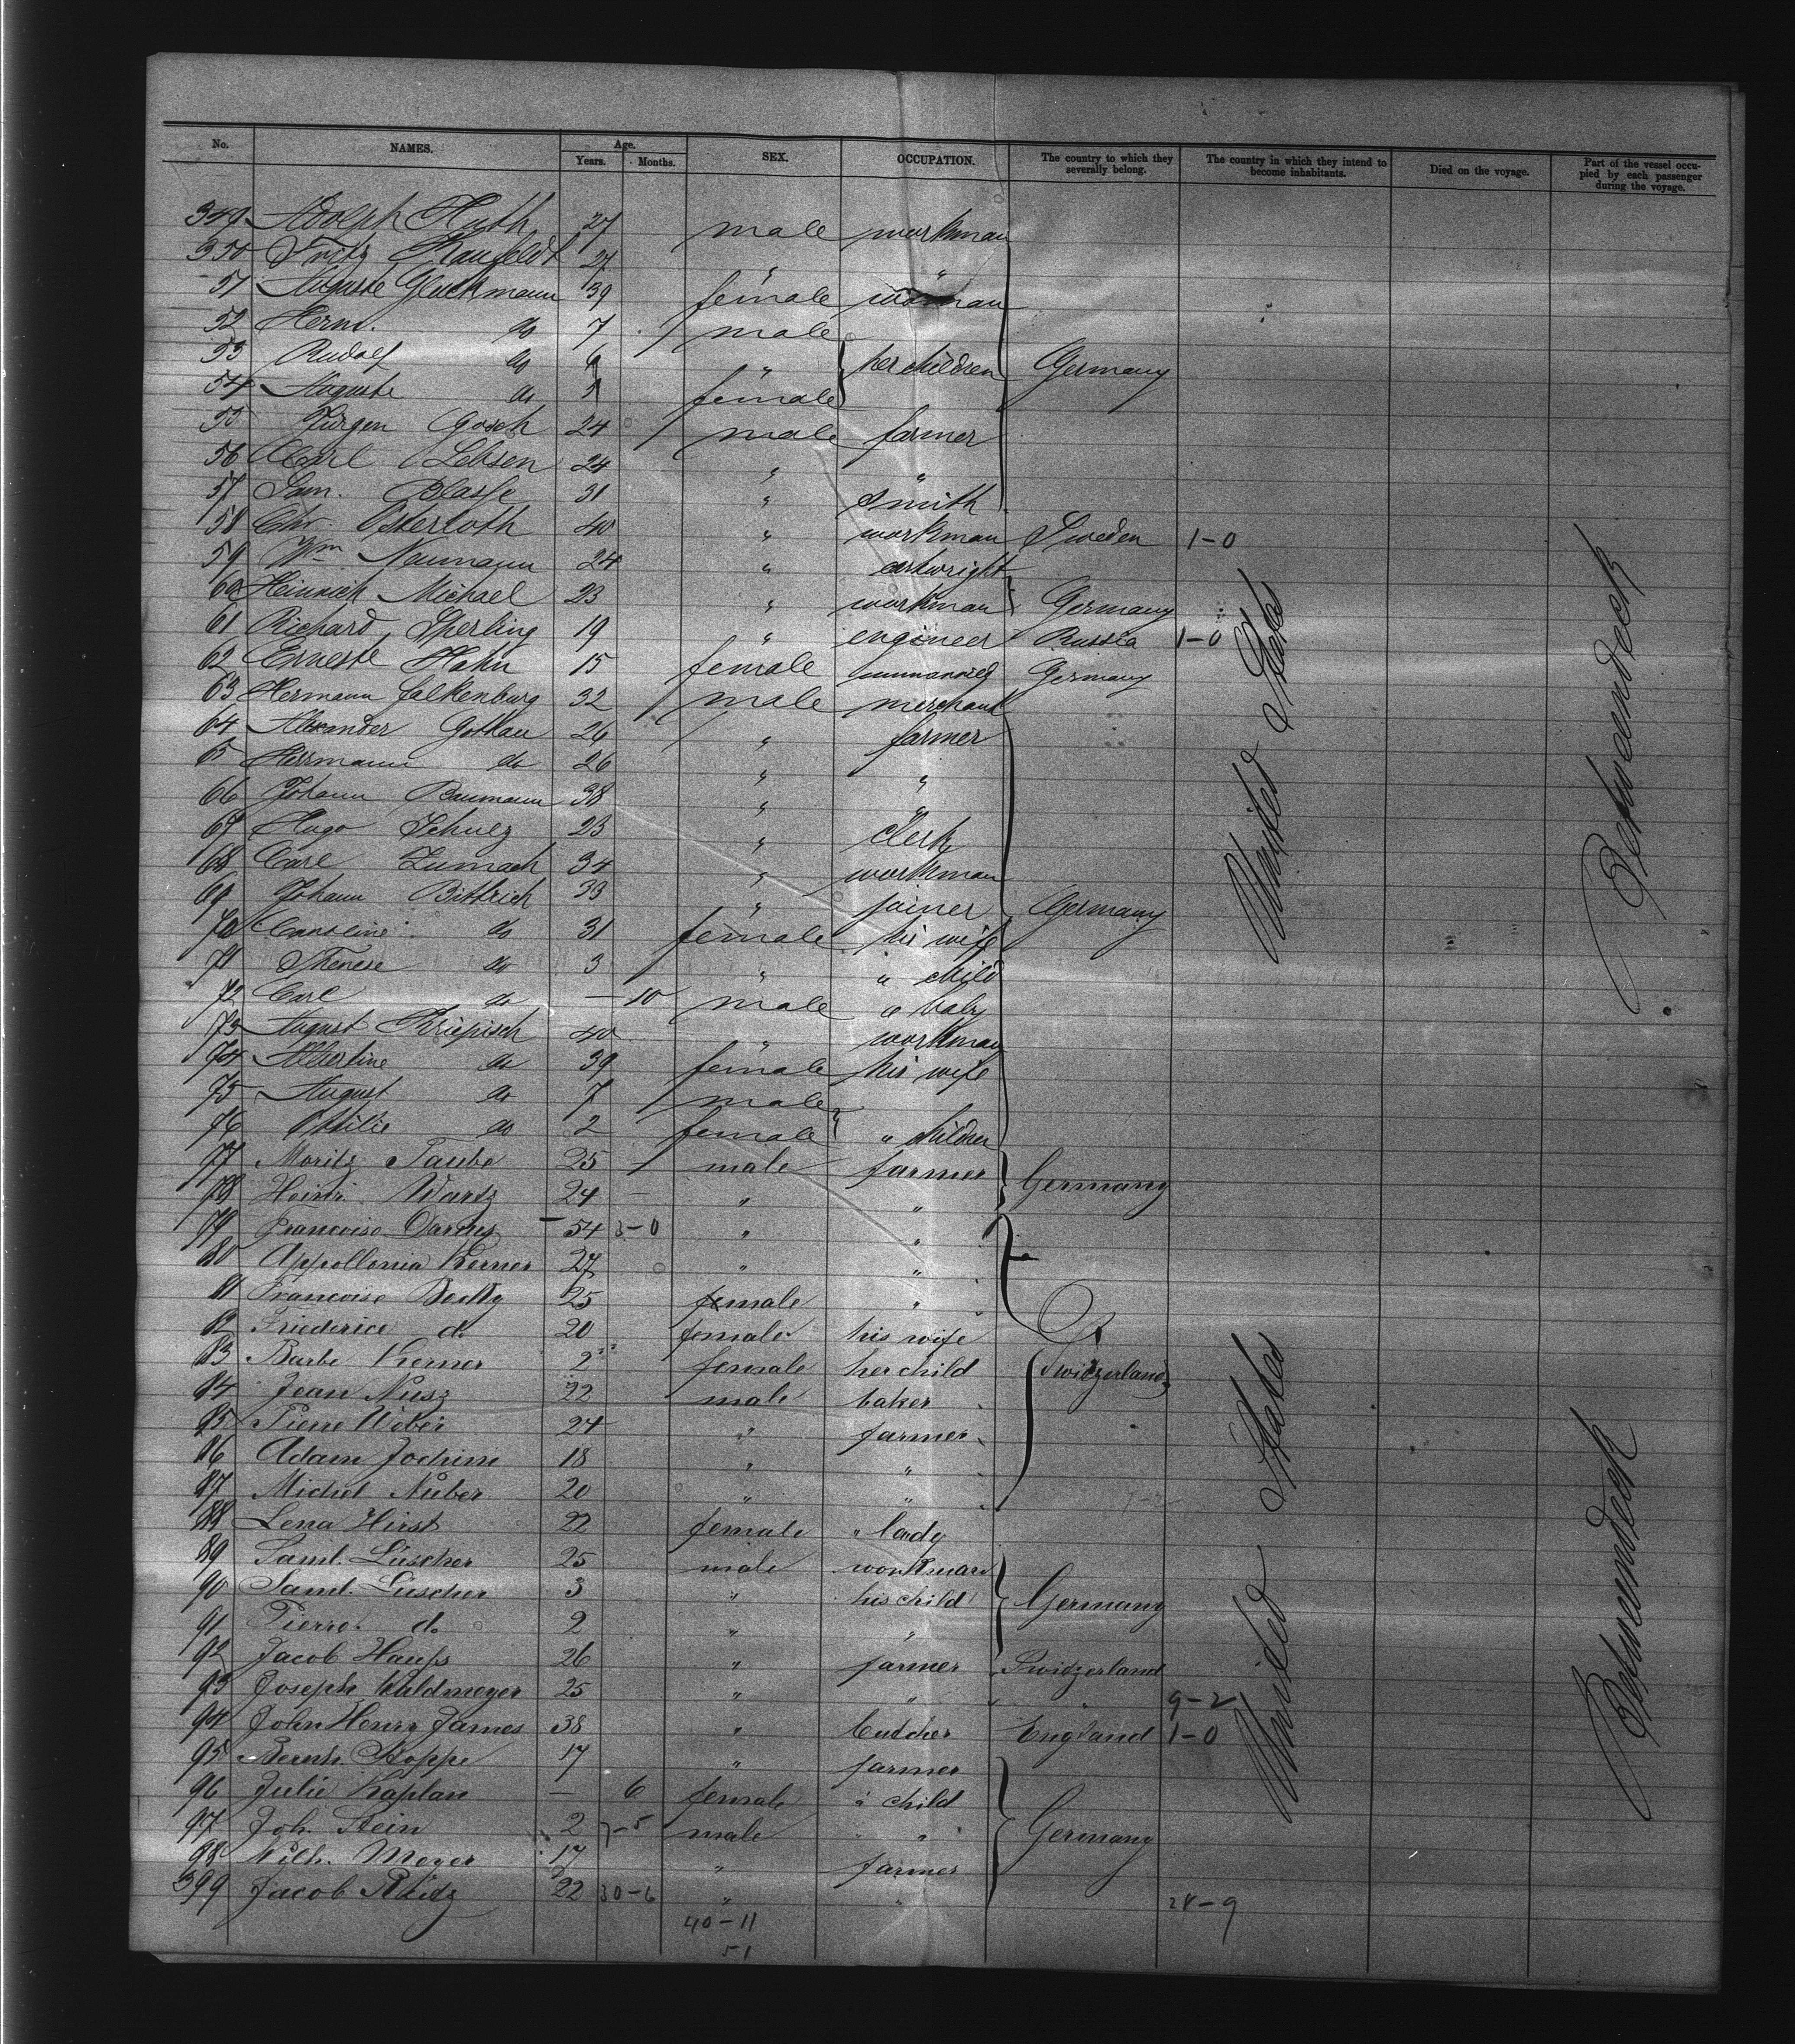 No. NAMES. Age. Years. Months. SEX. OCCUPATION. The country to which they severally belong. The country in which they intend to become inhabitants. Died on the voyage. Part of the vessel occupied by each passenger during the voyage.
349 Adolph Huth 27 male workman
350 Fritz 27 " "
51 Auguste Gluckmann 39 female woman
52 Herm. do 7 male
53 Rudolf do " her children Germany
54 Auguste do female
55 Jürgen Gosch 24 male farmer
56 Carl Lebsen 24 " "
57 Sam. Blasse 31 " smith
58 Chr. Osterloth 40 " workman Sweden 1-0
59 Wm. Naumann 24 " cartwright
60 Heinrich Michael 23 " workman Germany
61 Richard Sperling 19 " engineer Russia 1-0
62 Erneste Hahn 15 female unmarried Germany
63 Hermann Falkenburg 32 male merchant
64 Alexander Gothau 26 " farmer
65 Herrmann do 26 " "
66 Johann Baumann 38 " "
67 Hugo Schulz 23 " clerk
68 Carl Zumach 34 " workman
69 Johann Bittrich 33 " joiner Germany
70 Caroline do 31 female his wife
71 Therese do 3 " " child
72 Carl do — 10 male " baby
73 August Kriepisch 40 " workman
74 Albertine do 39 female his wife
75 August do 7 male
76 Ottilie do 2 female " children
77 Moritz Taube 25 male farmer Germany
78 Heinr Wartz 24 — " "
79 Francoise 54 3-0 " "
80 Appollonia Kerner 27 " "
81 Francoise 25 female "
82 Friederice d. 20 female his wife
83 Barbe Kerner 2 female her child Switzerland
84 Jean Nusz 22 male baker
85 Pierre Weber 24 " farmer
86 Adam Jochim 18 " "
87 Michel Nuber 20 " "
88 Lena Hirst 22 female " lady
89 Saml. Lüscher 25 male workman
90 Saml. Lüscher 3 " his child Germany
91 Pierre d. 2 " "
92 Jacob Haufs 26 " farmer Switzerland
93 Joseph Waldmeyer 25 " " " 9-2
94 John Henry James 38 " butcher England 1-0
95 Bernh. Hoppe 17 " farmer
96 Julie Kaplan — 6 female " child
97 Joh. Stein 2 7-5 male " Germany
98 Wilh. Meyer 17 " farmer
399 Jacob 22 30-6 " " 28-9
40-11
51
United States
Betweendeck
United States
Betweendeck